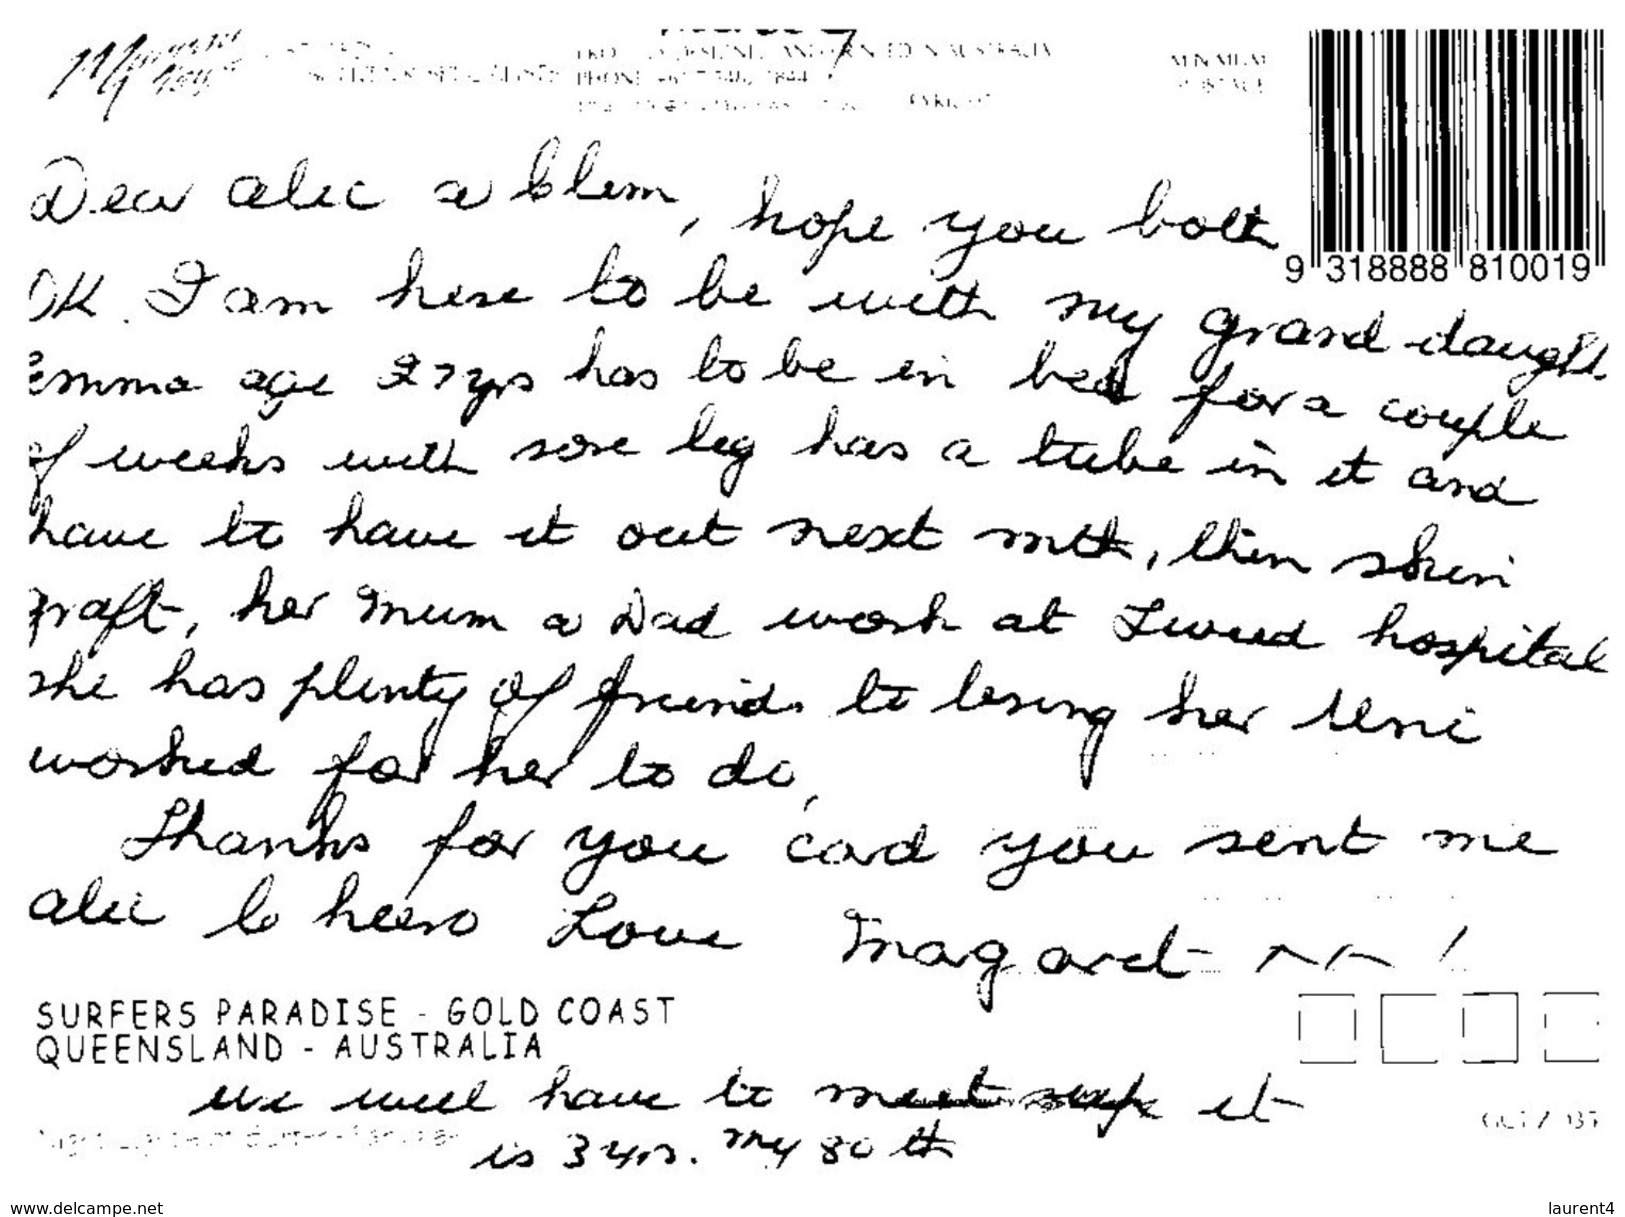 DESIGNED AND PRINTED IN AUSTRALIA
PHONE
MINIMUM
POSTAGE
Dear Alec & Clem, hope you both
OK. I am here to be with my grand-daught
Emma age 27 yrs has to be in bed for a couple
of weeks with sore leg has a tube in it and
have to have it out next mth, then skin
graft, her Mum & Dad work at Tweed hospital
she has plenty of friends to bring her Uni
worked for her to do,
Thanks for you card you sent me
Alec Love Margaret
9 318888 810019
SURFERS PARADISE - GOLD COAST
QUEENSLAND - AUSTRALIA
we will have to meet it
is 3 yrs. my 80 th
www.delcampe.net
laurent4